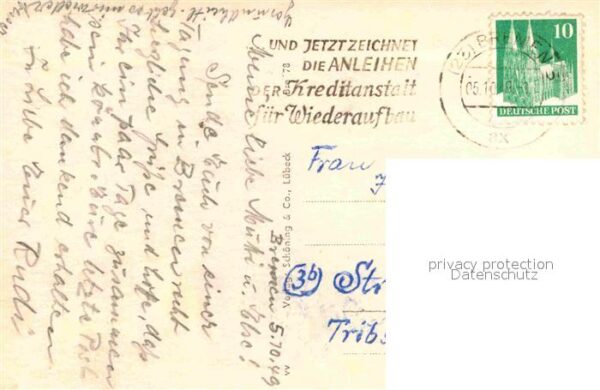 UND JETZT ZEICHNET
DIE ANLEIHEN
DER Kreditanstalt
für Wiederaufbau
(23) BREMEN 5
05.10.49
10
DEUTSCHE POST
Frau
(3b) Str
Tribs
privacy protection
Datenschutz
Verlag Schöning & Co., Lübeck
Bremen 5.10.49
Meine liebe Mutti u. Ilse!
Sende Euch von einer
Tagung in Bremen recht
herzliche Grüße und hoffe, daß
Ihr ein paar Tage zusammen
sein könnt. Eure letzte Post
habe ich dankend erhalten
In Liebe Euer Rudi